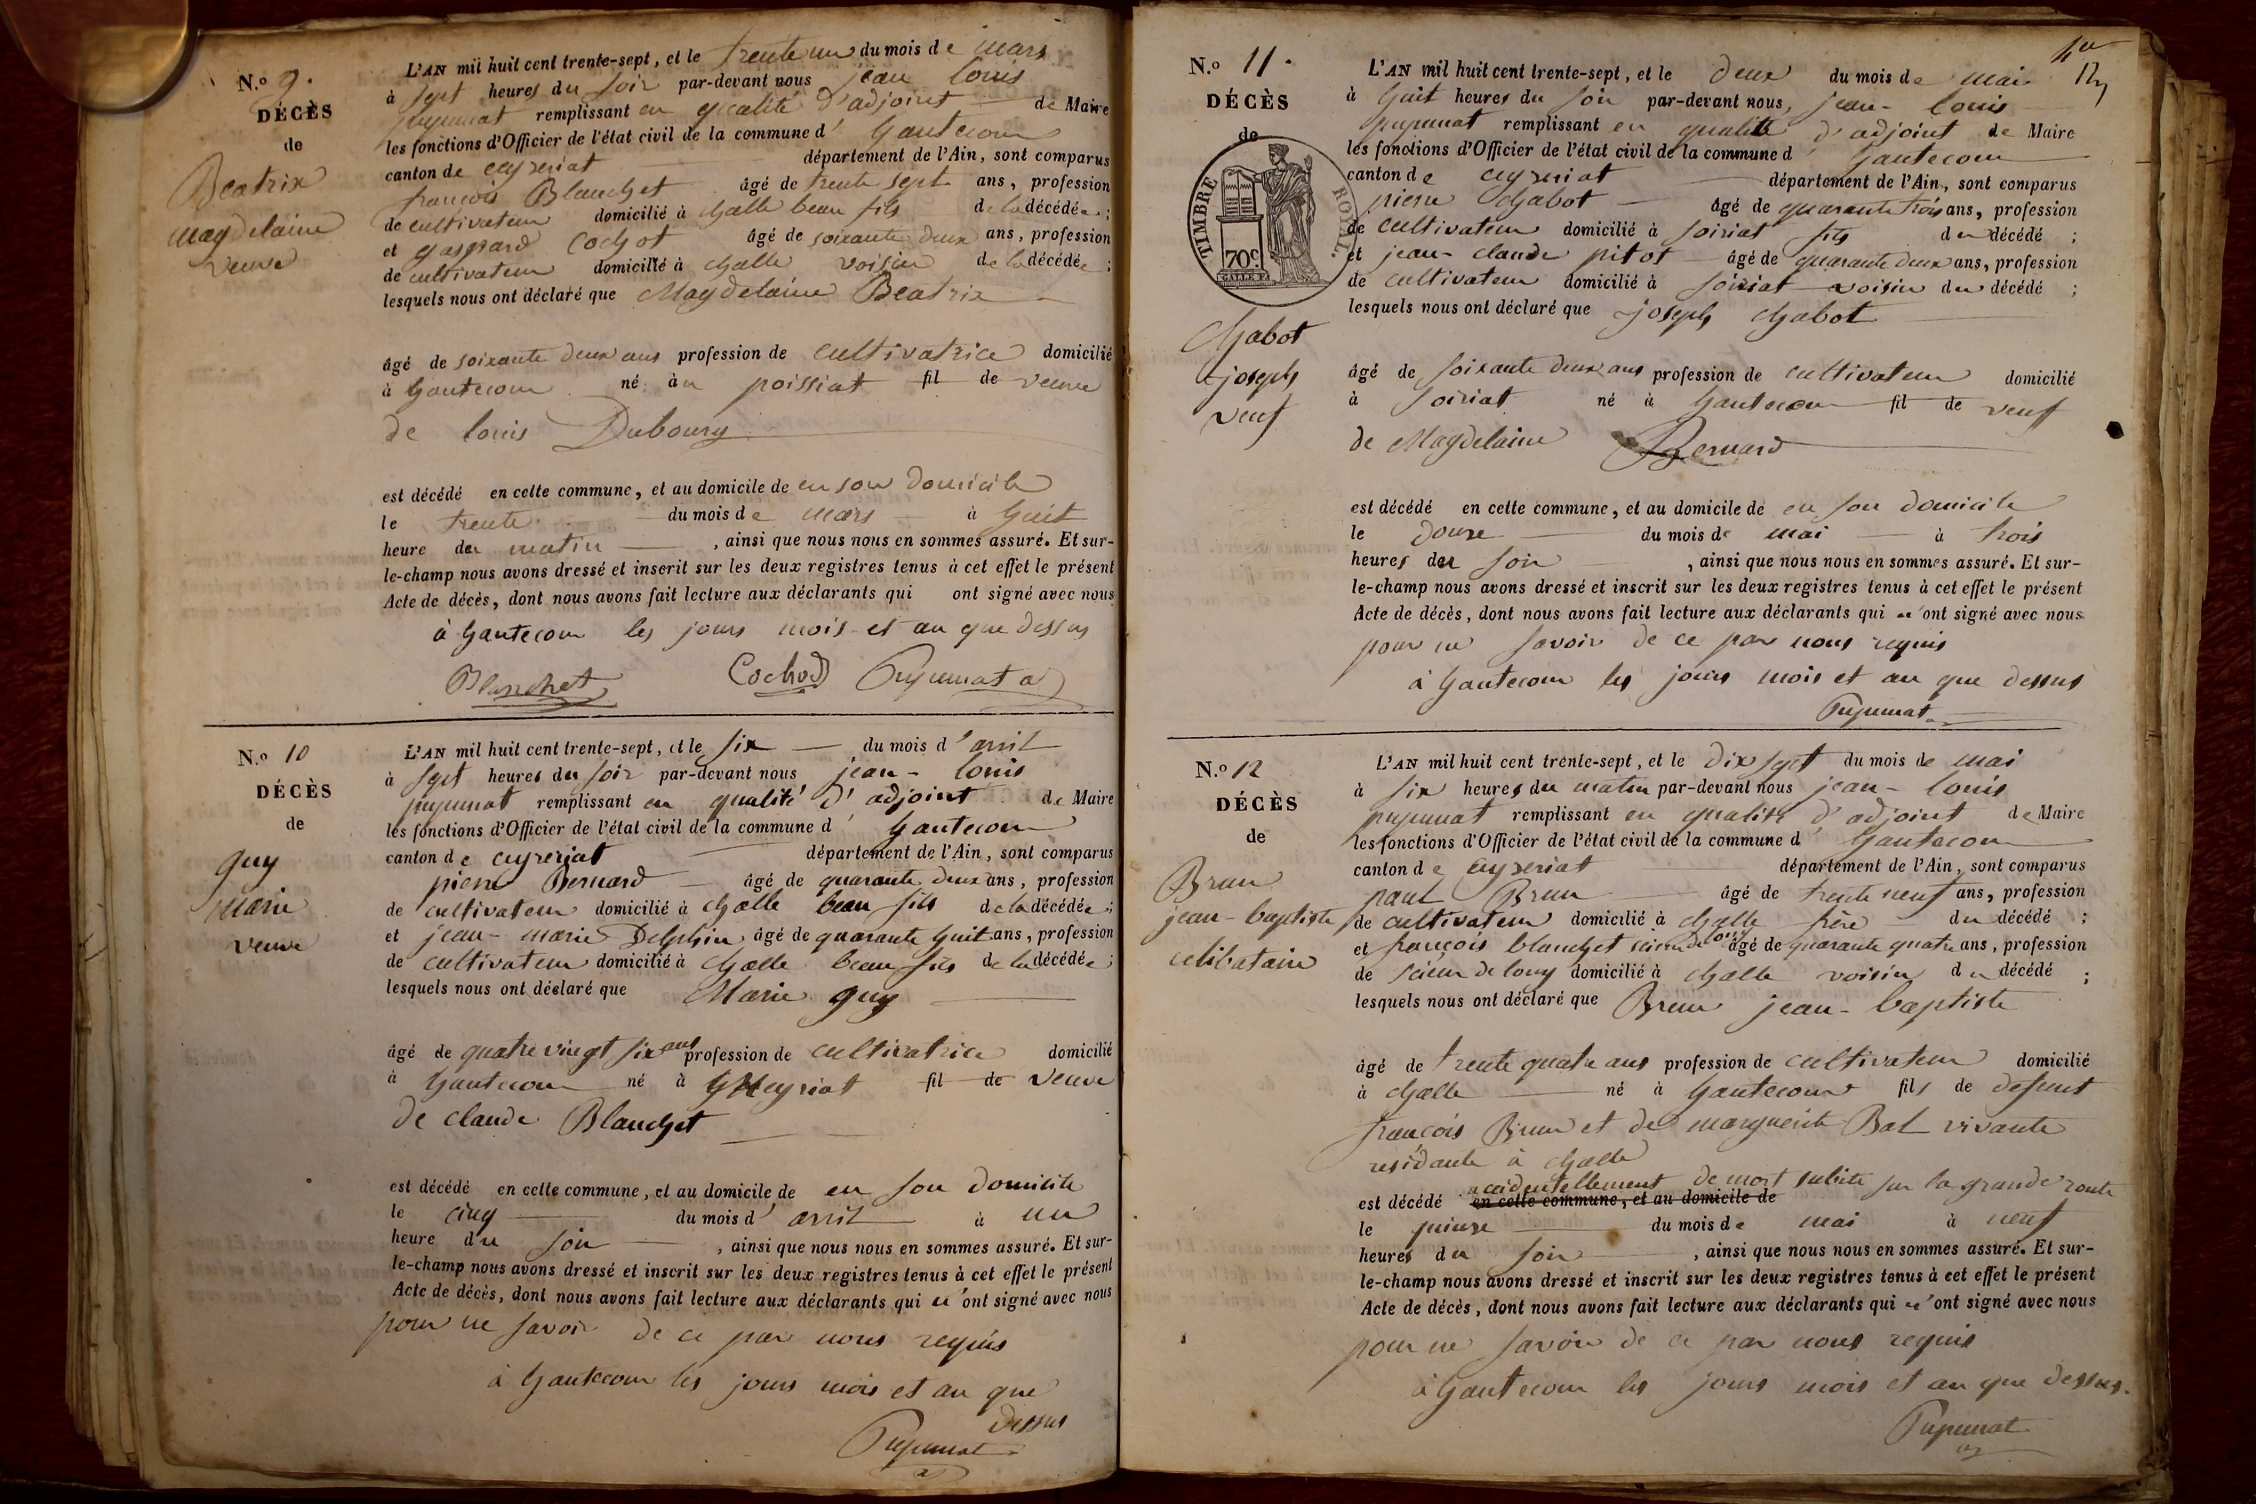 N.o 9.
DÉCÈS
de
Beatrix
Magdelaine
veuve
L'AN mil huit cent trente-sept, et le trente un du mois de mars
à sept heures du soir par-devant nous jean louis
pupunat remplissant en qualité d'adjoint de Maire
les fonctions d'Officier de l'état civil de la commune d' hautecour
canton de ceyzeriat département de l'Ain, sont comparus
françois Blanchet âgé de trente sept ans, profession
de cultivateur domicilié à challe beau fils de la décédée ;
et gaspard Cochot âgé de soixante deux ans, profession
de cultivateur domicilié à challe voisin de la décédée ;
lesquels nous ont déclaré que Magdelaine Beatrix
âgé de soixante deux ans profession de cultivatrice domicilié
à hautecour né à poissiat fil de veuve
de louis Dubourg
est décédé en cette commune, et au domicile de en son domicile
le trente du mois de mars à huit
heure du matin , ainsi que nous nous en sommes assuré. Et sur-
le-champ nous avons dressé et inscrit sur les deux registres tenus à cet effet le présent
Acte de décès, dont nous avons fait lecture aux déclarants qui ont signé avec nous
à hautecour les jours mois et an que dessus
Blanchet Cochod Pupunat a
N.o 10
DÉCÈS
de
guy
marie
veuve
L'AN mil huit cent trente-sept, et le six du mois d'avril
à sept heures du soir par-devant nous jean-louis
pupunat remplissant en qualité d'adjoint de Maire
les fonctions d'Officier de l'état civil de la commune d' hautecour
canton de ceyzeriat département de l'Ain, sont comparus
pierre Bernard âgé de quarante deux ans, profession
de cultivateur domicilié à challe beau fils de la décédée ;
et jean-marie Delphin âgé de quarante huit ans, profession
de cultivateur domicilié à challe beau fils de la décédée ;
lesquels nous ont déclaré que Marie guy
âgé de quatre vingt six ans profession de cultivatrice domicilié
à hautecour né à heyriat fil de veuve
de claude Blanchet
est décédé en cette commune, et au domicile de en son domicile
le cinq du mois d'avril à un
heure du soir , ainsi que nous nous en sommes assuré. Et sur-
le-champ nous avons dressé et inscrit sur les deux registres tenus à cet effet le présent
Acte de décès, dont nous avons fait lecture aux déclarants qui n'ont signé avec nous
pour ne savoir de ce par nous requis
à hautecour les jours mois et an que
dessus
Pupunat
N.o 11.
DÉCÈS
de
TIMBRE ROYAL.
70c.
Chabot
joseph
veuf
L'AN mil huit cent trente-sept, et le deux du mois de mai
à huit heures du soir par-devant nous, jean-louis
pupunat remplissant en qualité d'adjoint de Maire
les fonctions d'Officier de l'état civil de la commune d' hautecour
canton de ceyzeriat département de l'Ain, sont comparus
pierre Chabot âgé de quarante trois ans, profession
de cultivateur domicilié à soiriat fils du décédé ;
et jean-claude pitot âgé de quarante deux ans, profession
de cultivateur domicilié à soiriat voisin du décédé ;
lesquels nous ont déclaré que joseph chabot
âgé de soixante deux ans profession de cultivateur domicilié
à soiriat né à hautecour fil de veuf
de Magdelaine Bernard
est décédé en cette commune, et au domicile de en son domicile
le douze du mois de mai à trois
heures du soir , ainsi que nous nous en sommes assuré. Et sur-
le-champ nous avons dressé et inscrit sur les deux registres tenus à cet effet le présent
Acte de décès, dont nous avons fait lecture aux déclarants qui n'ont signé avec nous
pour ne savoir de ce par nous requis
à hautecour les jours mois et an que dessus
Pupunat
N.o 12
DÉCÈS
de
Brun
jean-baptiste
celibataire
L'AN mil huit cent trente-sept, et le dix sept du mois de mai
à six heures du matin par-devant nous jean-louis
pupunat remplissant en qualité d'adjoint de Maire
les fonctions d'Officier de l'état civil de la commune d' hautecour
canton de ceyzeriat département de l'Ain, sont comparus
paul Brun âgé de trente neuf ans, profession
de cultivateur domicilié à challe frère du décédé ;
et françois blanchet scieur de long âgé de quarante quatre ans, profession
de scieur de long domicilié à challe voisin du décédé ;
lesquels nous ont déclaré que Brun jean-baptiste
âgé de trente quatre ans profession de cultivateur domicilié
à challe né à hautecour fils de defunt
françois Brun et de marguerite Bal vivante
residante à challe
accidentellement de mort subite sur la grande route
est décédé en cette commune, et au domicile de
le quinze du mois de mai à neuf
heures du soir , ainsi que nous nous en sommes assuré. Et sur-
le-champ nous avons dressé et inscrit sur les deux registres tenus à cet effet le présent
Acte de décès, dont nous avons fait lecture aux déclarants qui n'ont signé avec nous
pour ne savoir de ce par nous requis
à hautecour les jours mois et an que dessus.
Pupunat